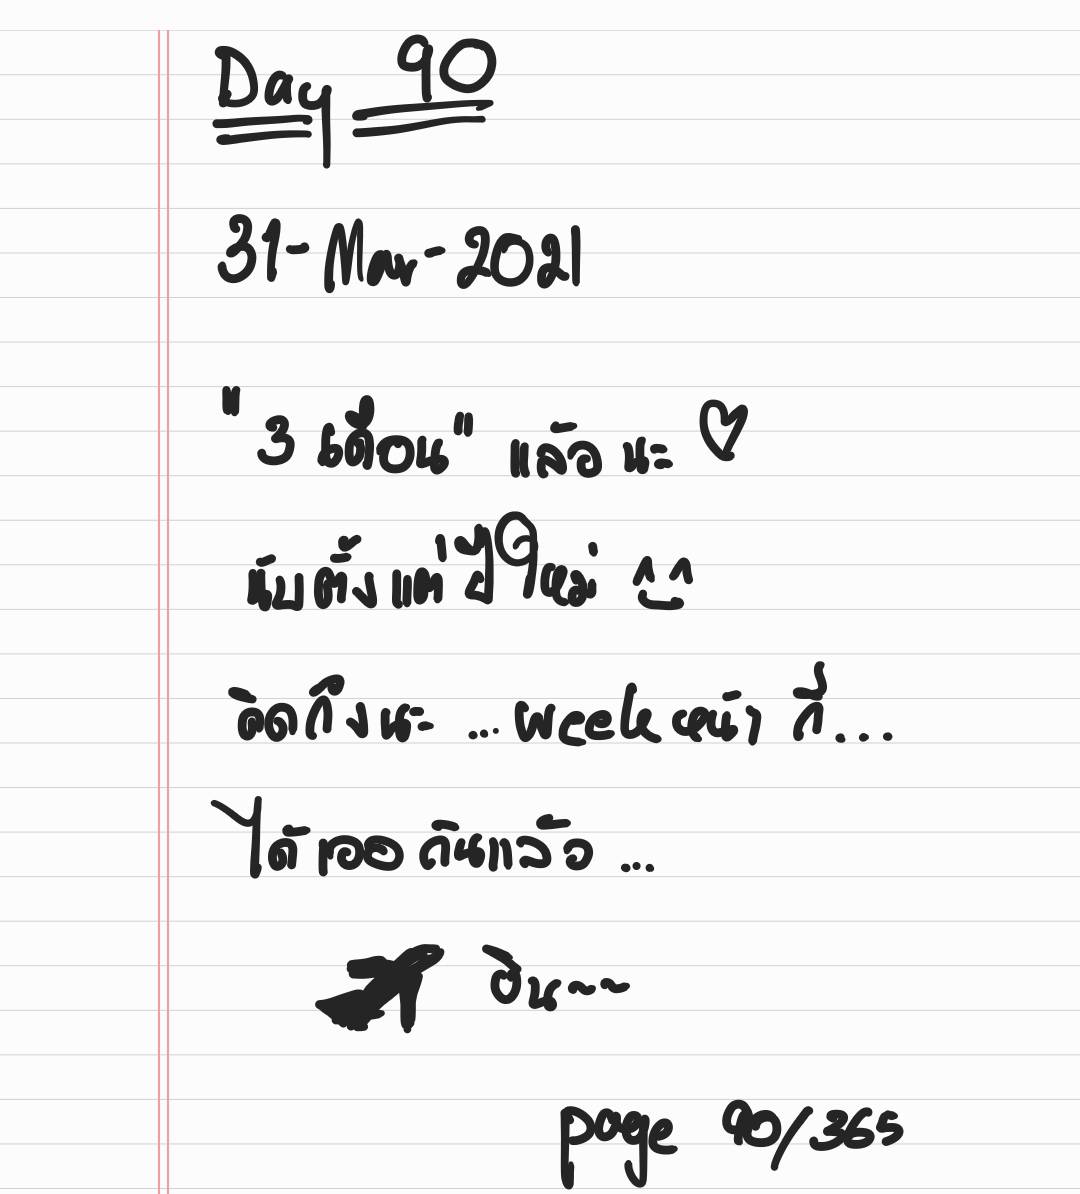 Day 90
31-Mar-2021
"3 เดือน" แล้ว นะ ♡
นับ ตั้ง แต่ ปีใหม่ ^_^
คิดถึง นะ ... week หน้า ก็...
ได้ เจอ กันแล้ว ...
บิน~~
page 90/365